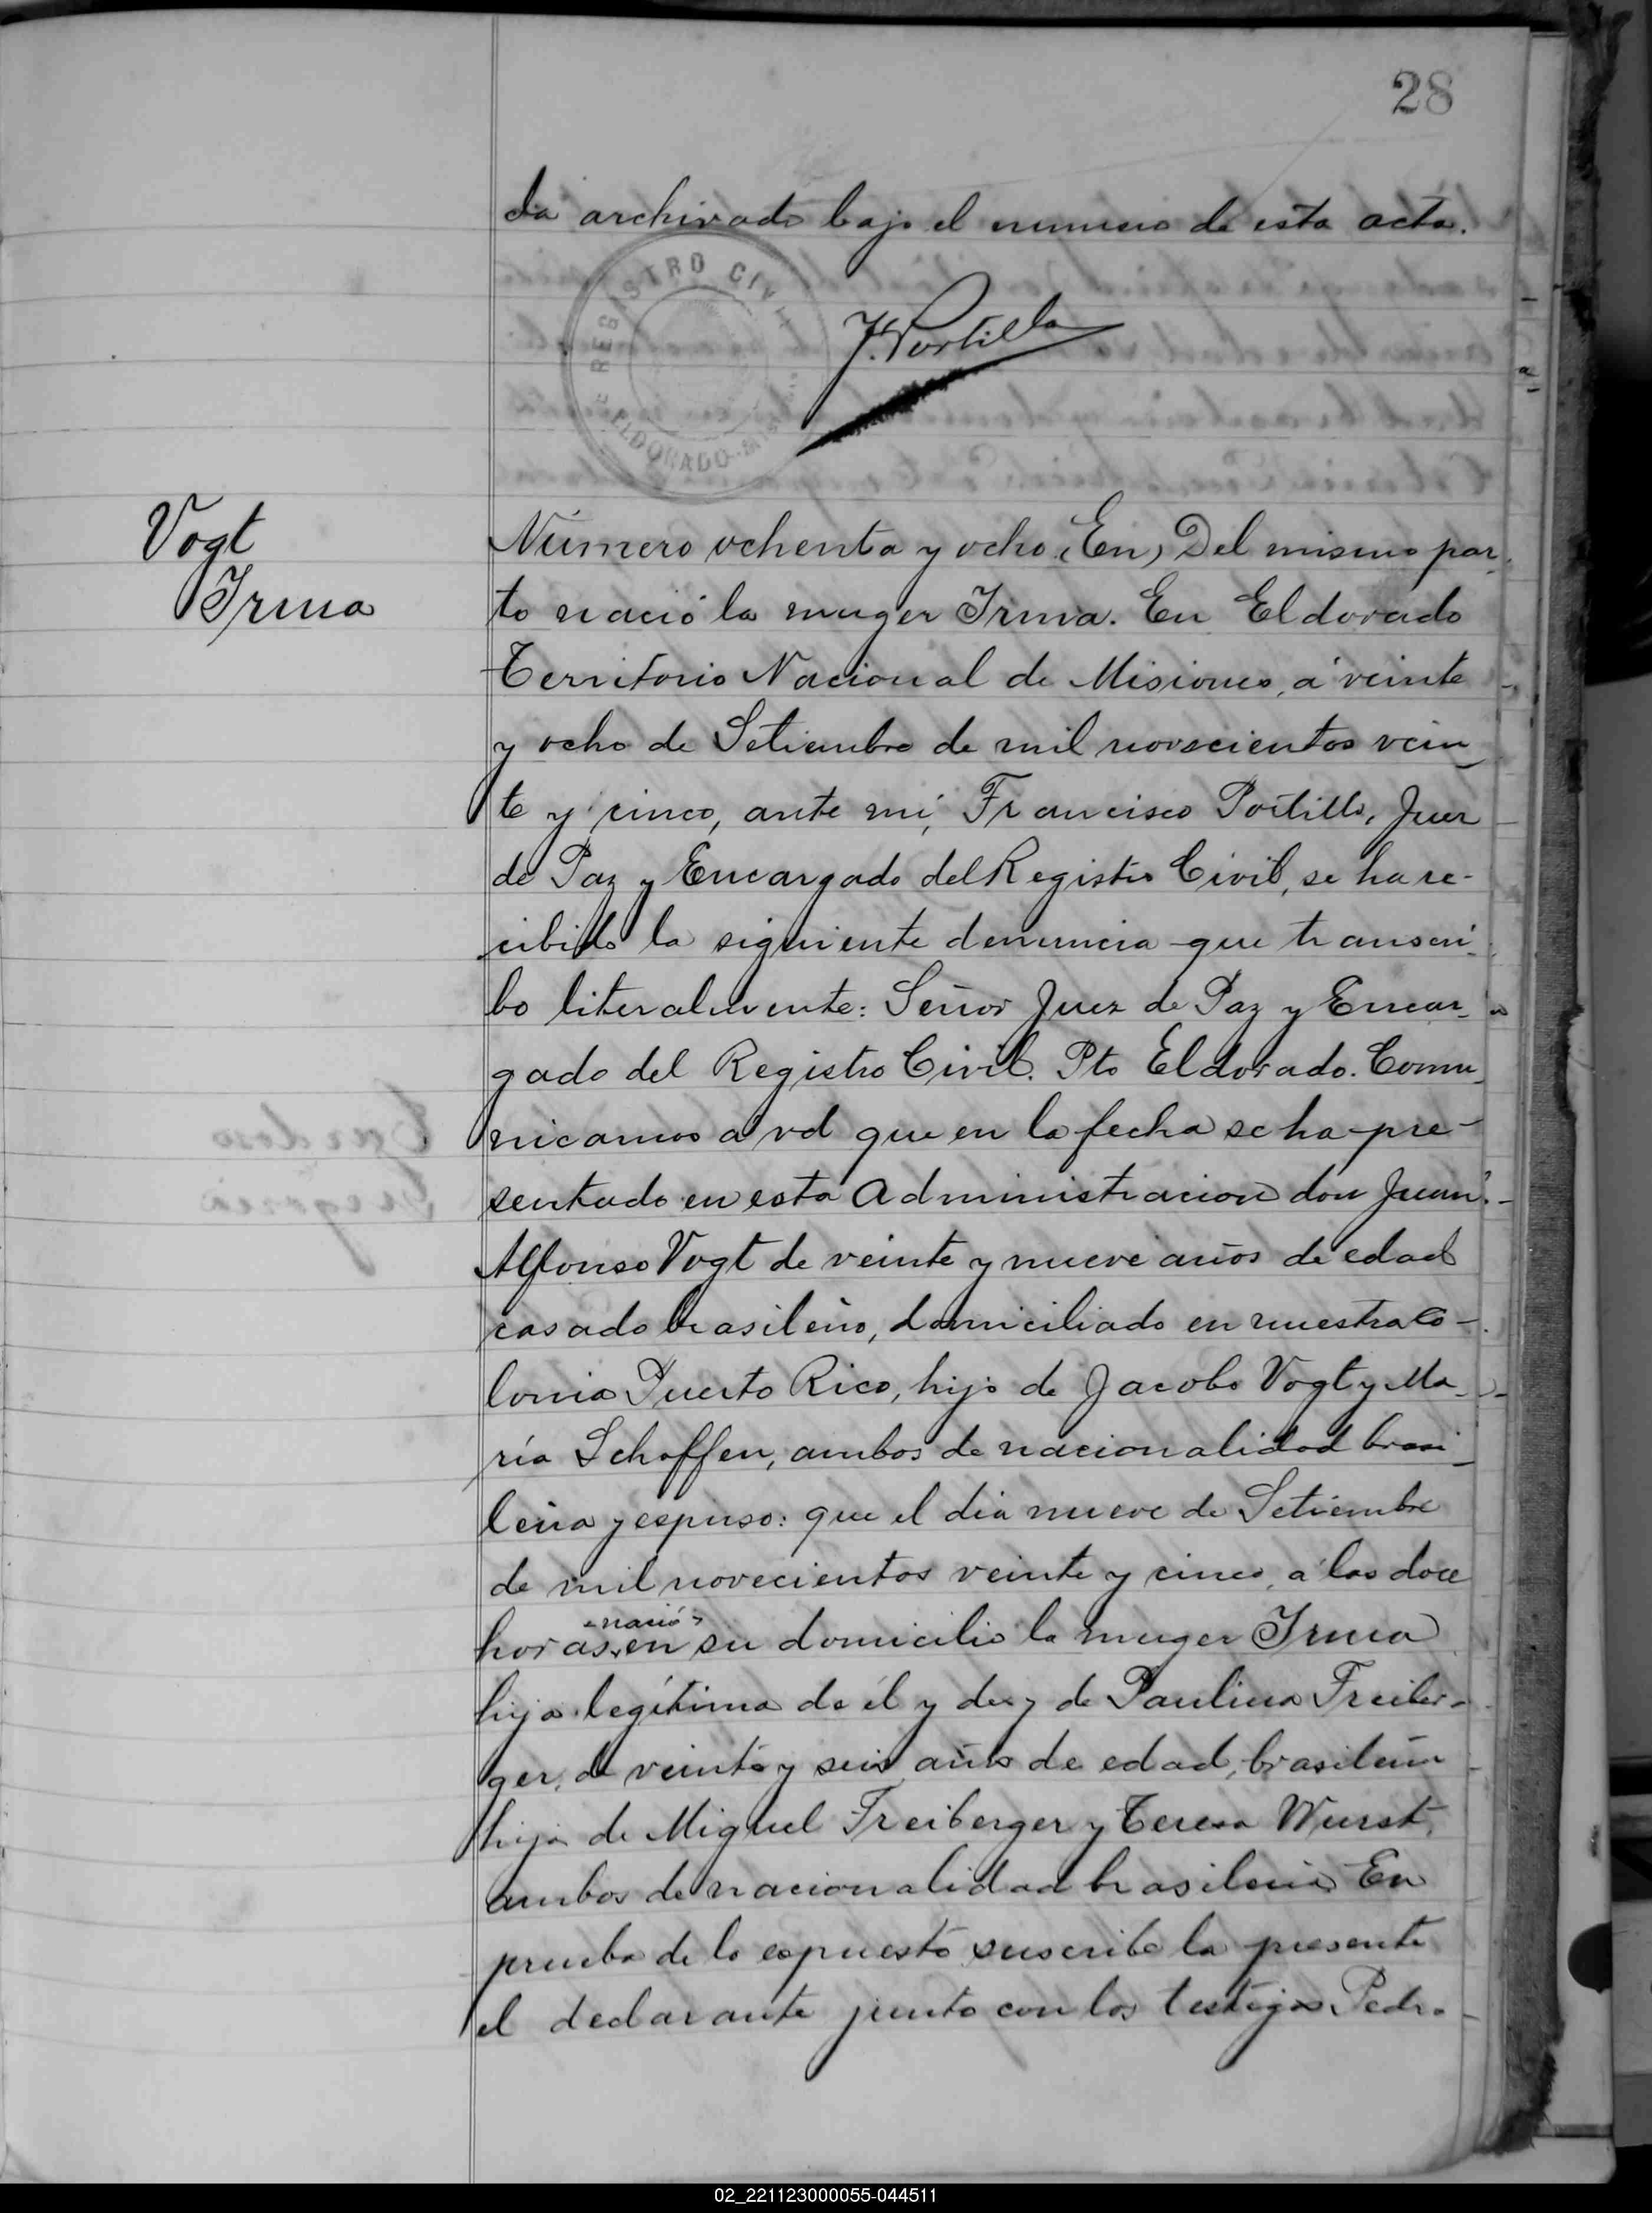 28
da archivado bajo el numero de esta acta.
REGISTRO CIVIL
ELDORADO
F. Portillo
Vogt
Irma
Número ochenta y ocho (En) Del mismo par-
to nació la muger Irma. En Eldorado
Territorio Nacional de Misiones, á veinte
y ocho de Setiembre de mil novecientos vein
te y cinco, ante mí, Francisco Portillo, Juez
de Paz y Encargado del Registro Civil, se ha re-
cibido la siguiente denuncia que transcri-
bo literalmente: Señor Juez de Paz y Encar-
gado del Registro Civil. Pto Eldorado. Comu-
nicamos á vd que en la fecha se ha pre-
sentado en esta Administracion don Juan
Alfonso Vogt de veinte y nueve años de edad
casado brasileño, domiciliado en nuestra Co-
lonia Puerto Rico, hijo de Jacobo Vogt y Ma-
ría Schoffen, ambos de nacionalidad brasi-
leña y espuso: que el dia nueve de Setiembre
de mil novecientos veinte y cinco, á las doce
-nació-
horas en su domicilio la muger Irma
hija legítima de él y de y de Paulina Freiber-
ger, de veinte y seis años de edad, brasileña
hija de Miguel Freiberger y Teresa Wurst,
ambos de nacionalidad brasileña En
prueba de lo espuesto suscribe la presente
el declarante junto con los testigos Pedro
02_221123000055-044511